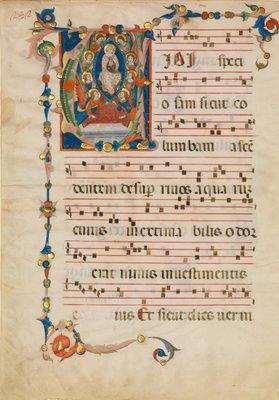 VIDI speci
osam sicut co
lumbam ascē
dentem desup rivos aqua ruz
cuius inextima bilis odor
erat nimis in vestimentis
e ius Et sicut dies verni